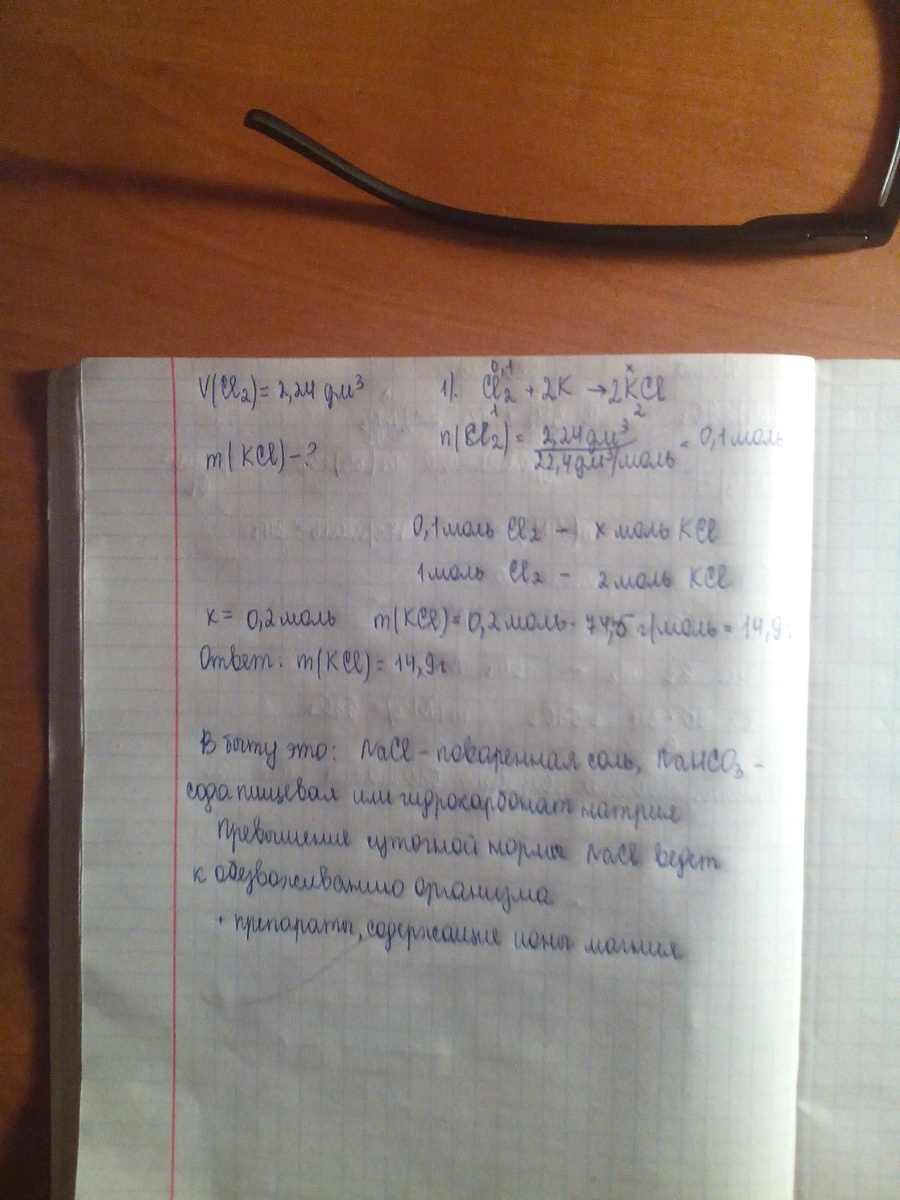 V(Cl₂) = 2,24 дм³
m(KCl) - ?
0,1 x
1). Cl₂ + 2K → 2KCl
1 2
n(Cl₂) = 2,24 дм³ / 22,4 дм³/моль = 0,1 моль
0,1 моль Cl₂ - x моль KCl
1 моль Cl₂ - 2 моль KCl
x = 0,2 моль m(KCl) = 0,2 моль · 74,5 г/моль = 14,9г
Ответ: m(KCl) = 14,9г
В быту это: NaCl - поваренная соль, NaHCO₃ -
сода пищевая или гидрокарбонат натрия
Превышение суточной нормы NaCl ведет
к обезвоживанию организма
• препараты, содержащие ионы магния